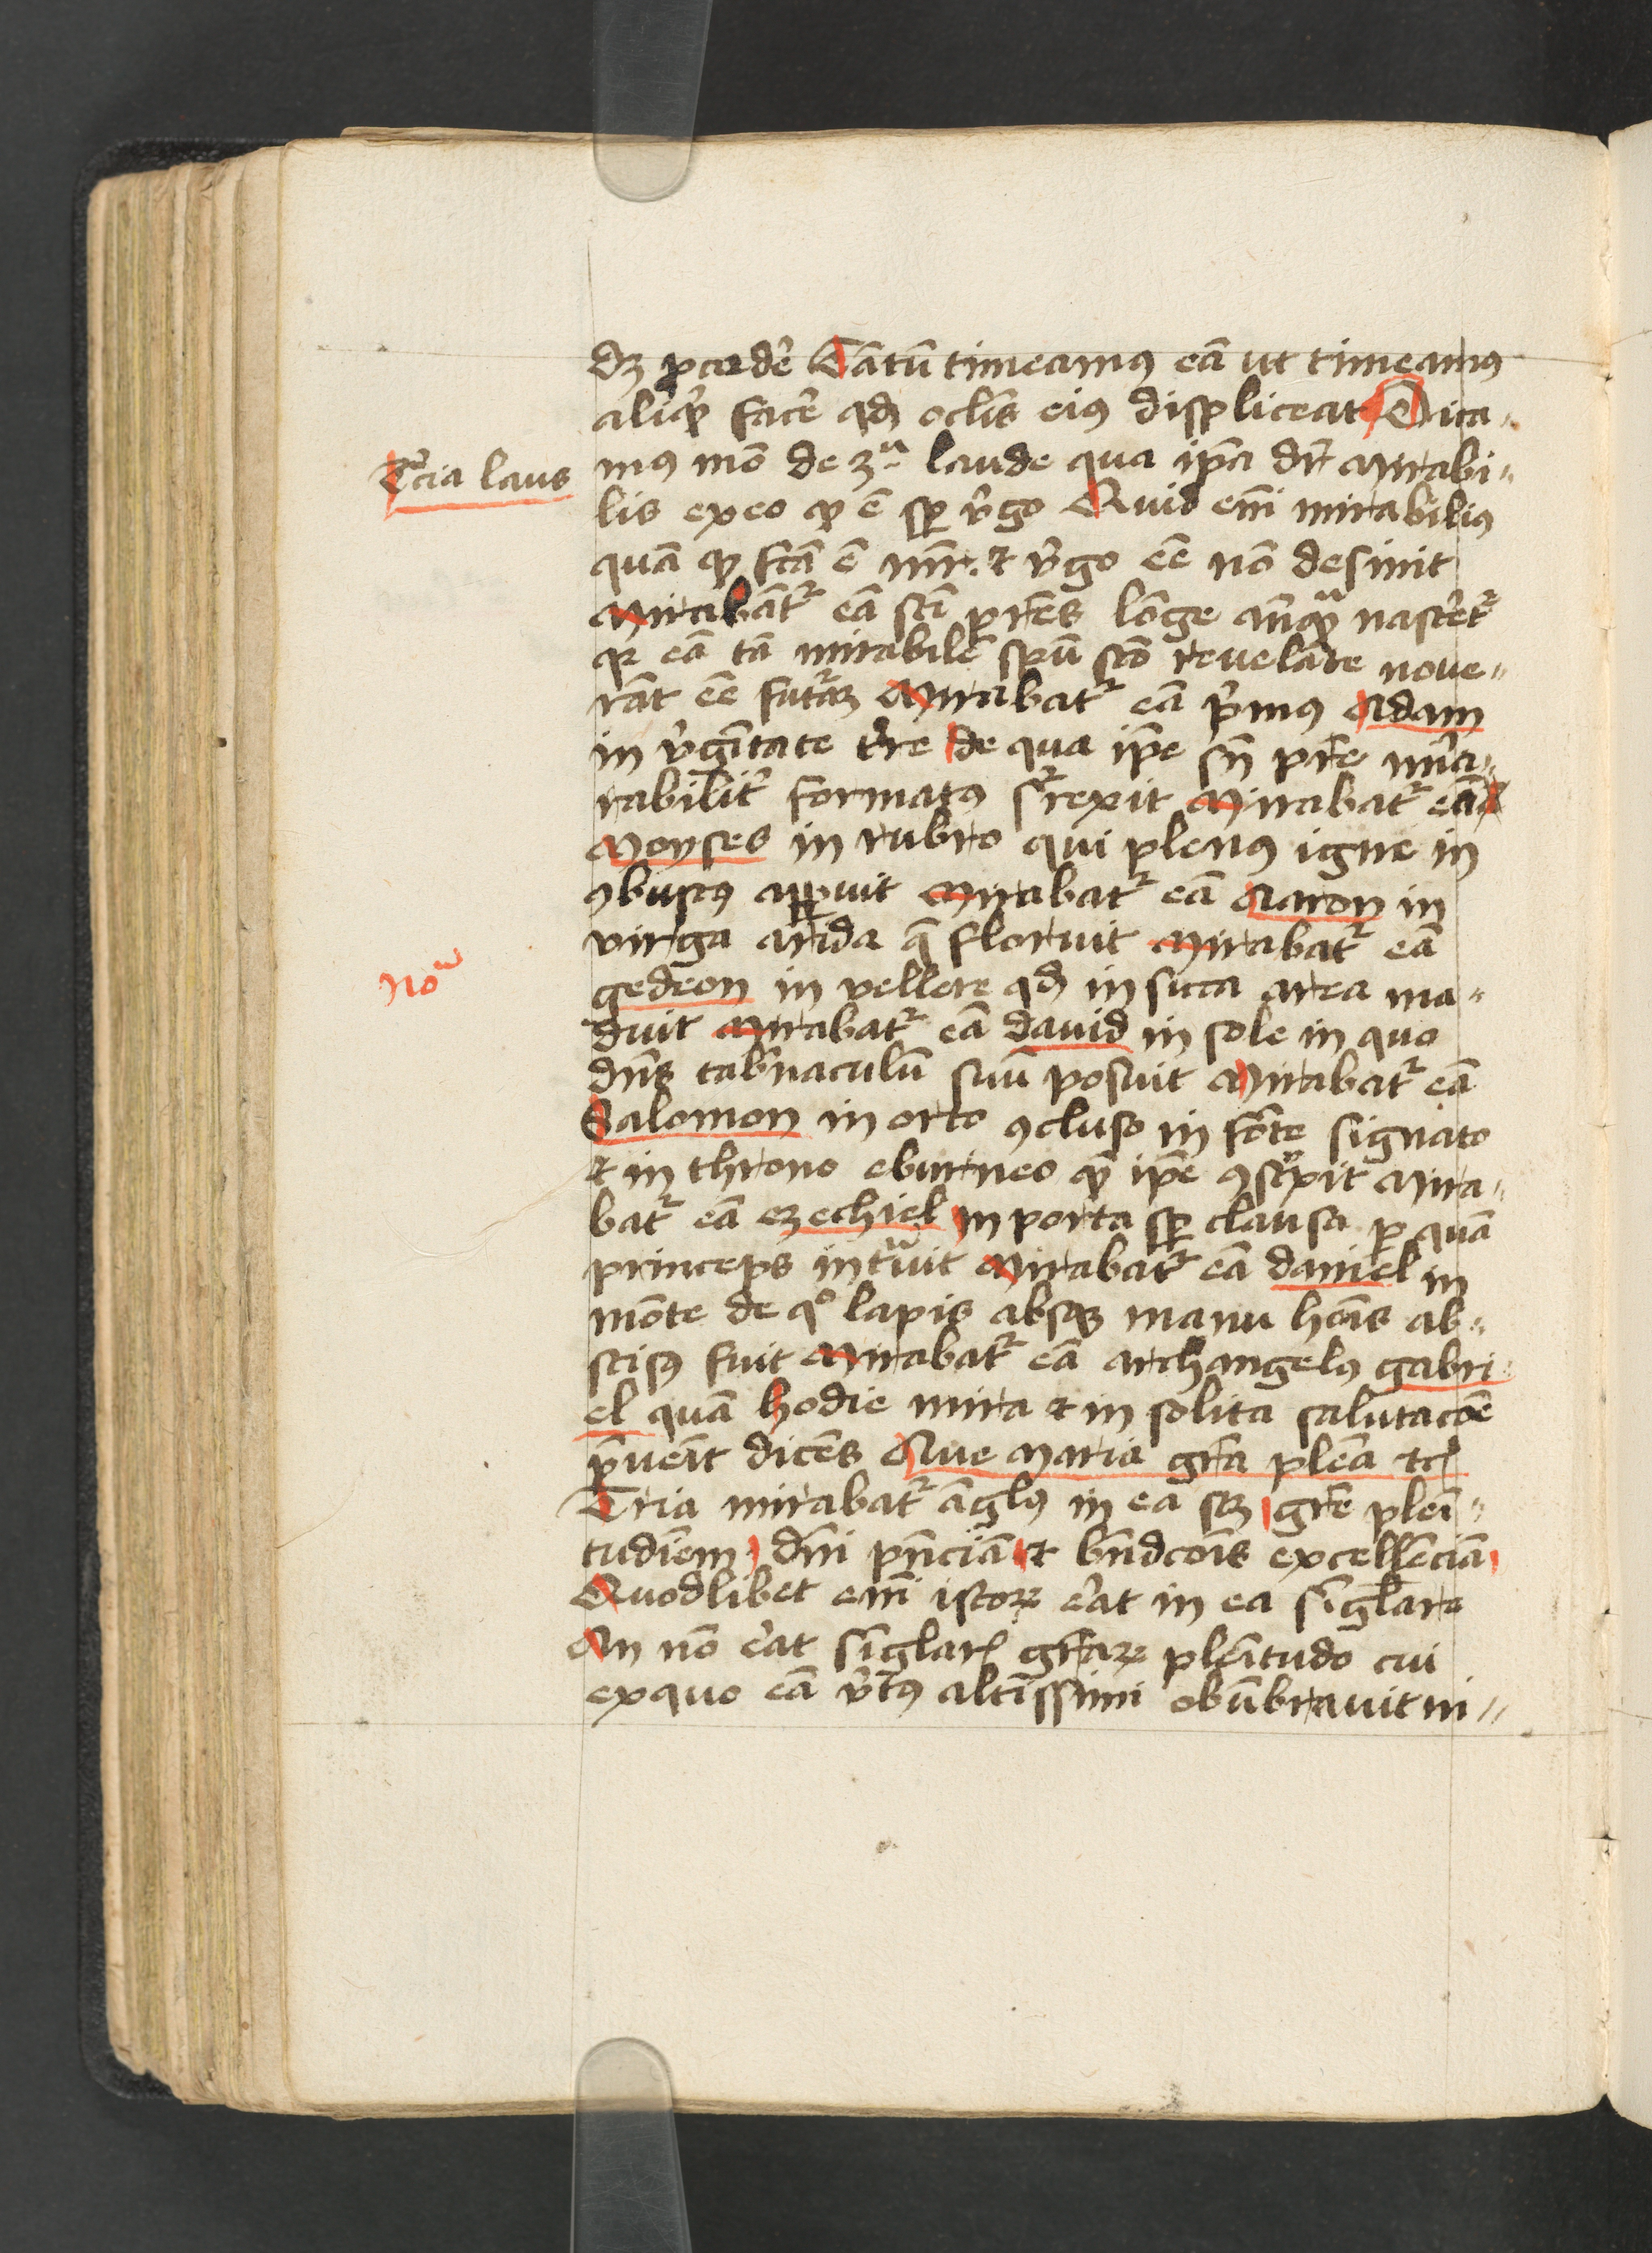 dꝫ ꝑcedē Tātū timeamꝰ eā ut timeamꝰ
aliqͩ facē qd̄ oclīs eiꝰ displiceat Dica-
Tcia laus
mꝰ mō de 3ᵃ laude qua ip̄a dr̄ mirabi-
lis ex eo ꝙ ē sꝑ v̓go Quid em̄ mirabiliꝰ
quā ꝙ fcā ē mr̄ ⁊ v̓go eē nō desinit
Mirabāt᷑ eā scī pr̄es lōge an̄qᵃ nascet᷑
qr eā tā mirabilē spū scō reuelāte noue-
rāt eē futᷓrꝫ Mirabat᷑ eā p̓mꝰ Adam
in v̓gītate t̓re de qua ip̄e sn̄ pr̄e mira-
rabilit̓ formatꝰ sr̓rexit Mirabat᷑ eā
Moyses in rubro qui plenꝰ igne in
ꝯbustꝰ apꝑuit Mirabat᷑ eā Aaron in
virga arida q̄ floruit Mirabat᷑ eā
Noᵃ
gedeon in vellere qd̄ in sicca area ma-
duit Mirabat᷑ eā dauid in sole in quo
dn̄s tab̓naculū suū posuit Mirabat᷑ eā
Salomon in orto ꝯcluso in fōte signato
⁊ in throno eburneo ꝙ ip̄e ꝯscͥpsit Mira-
bat᷑ eā ezechiel in porta sꝑ clausa ꝑ quā
princeps intᷓuit Mirabat᷑ eā daniel in
mōte de qͦ lapis absqꝫ manu hoīs ab-
scisꝰ fuit Mirabat᷑ eā archangelꝰ gabri-
el quā hodie mira ⁊ in solita salutacōe
p̄ueīt dicēs Aue Maria gr̄a plēa ⁊c̃
Tria mirabat᷑ āglꝰ in ea sꝫ gr̄e pleī-
tudīem dn̄i pn̄ciā ⁊ bn̄dcōis excellēciā
Quodlibet em̄ istoꝝ erat in ea singlare
An nō erat singlar̄ gr̄aꝝ pleītudo cui
ex quo eā v̓tꝰ altissimi obūbrauit ni-